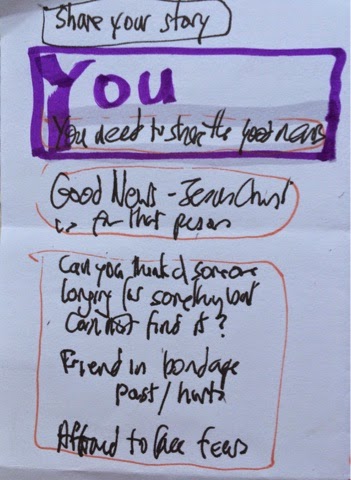 Share your story
You
You need to share the good news
Good News - Jesus Christ
is for that person
Can you think of someone
longing for something but
Can not find it?
Friend in bondage
past / hurts
Affraid to face fears